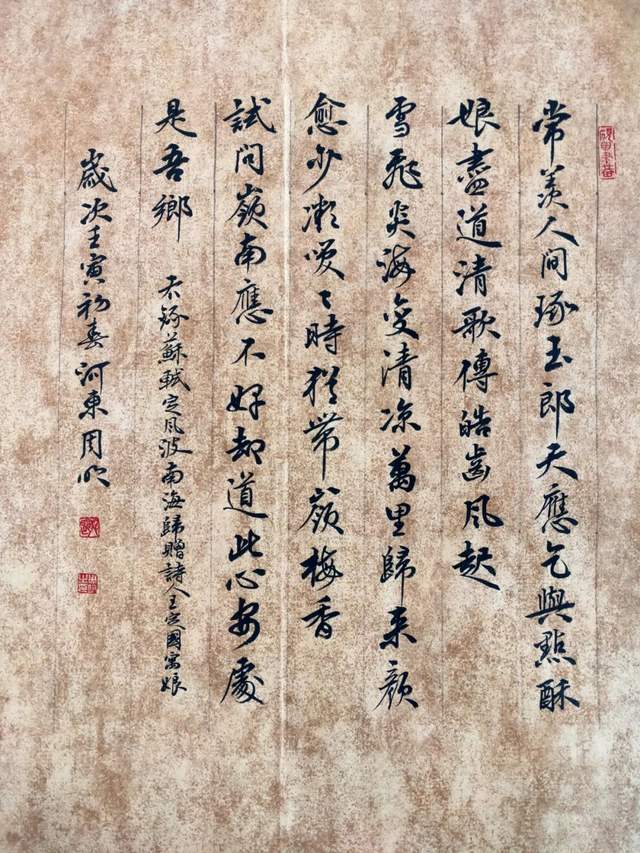 常羨人间琢玉郎天應乞與點酥
娘盡道清歌傳皓齒风起
雪飛炎海变清凉萬里歸来顔
愈少微咲々時猶帶嶺梅香
試问嶺南應不好却道此心安處
是吾鄉
右錄蘇軾定风波南海歸贈詩人王定國寓娘
歲次壬寅初春河東周